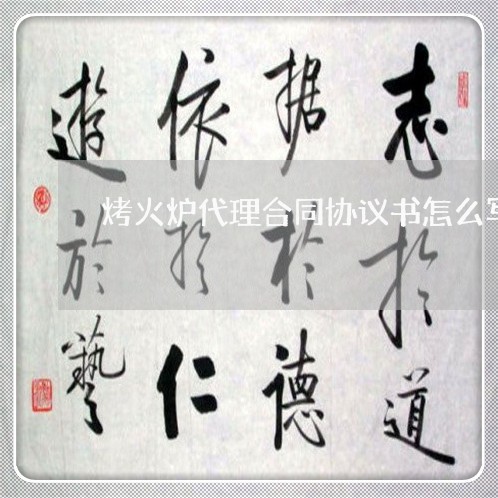 志於道
据於德
依於仁
遊於藝
烤火炉代理合同协议书怎么